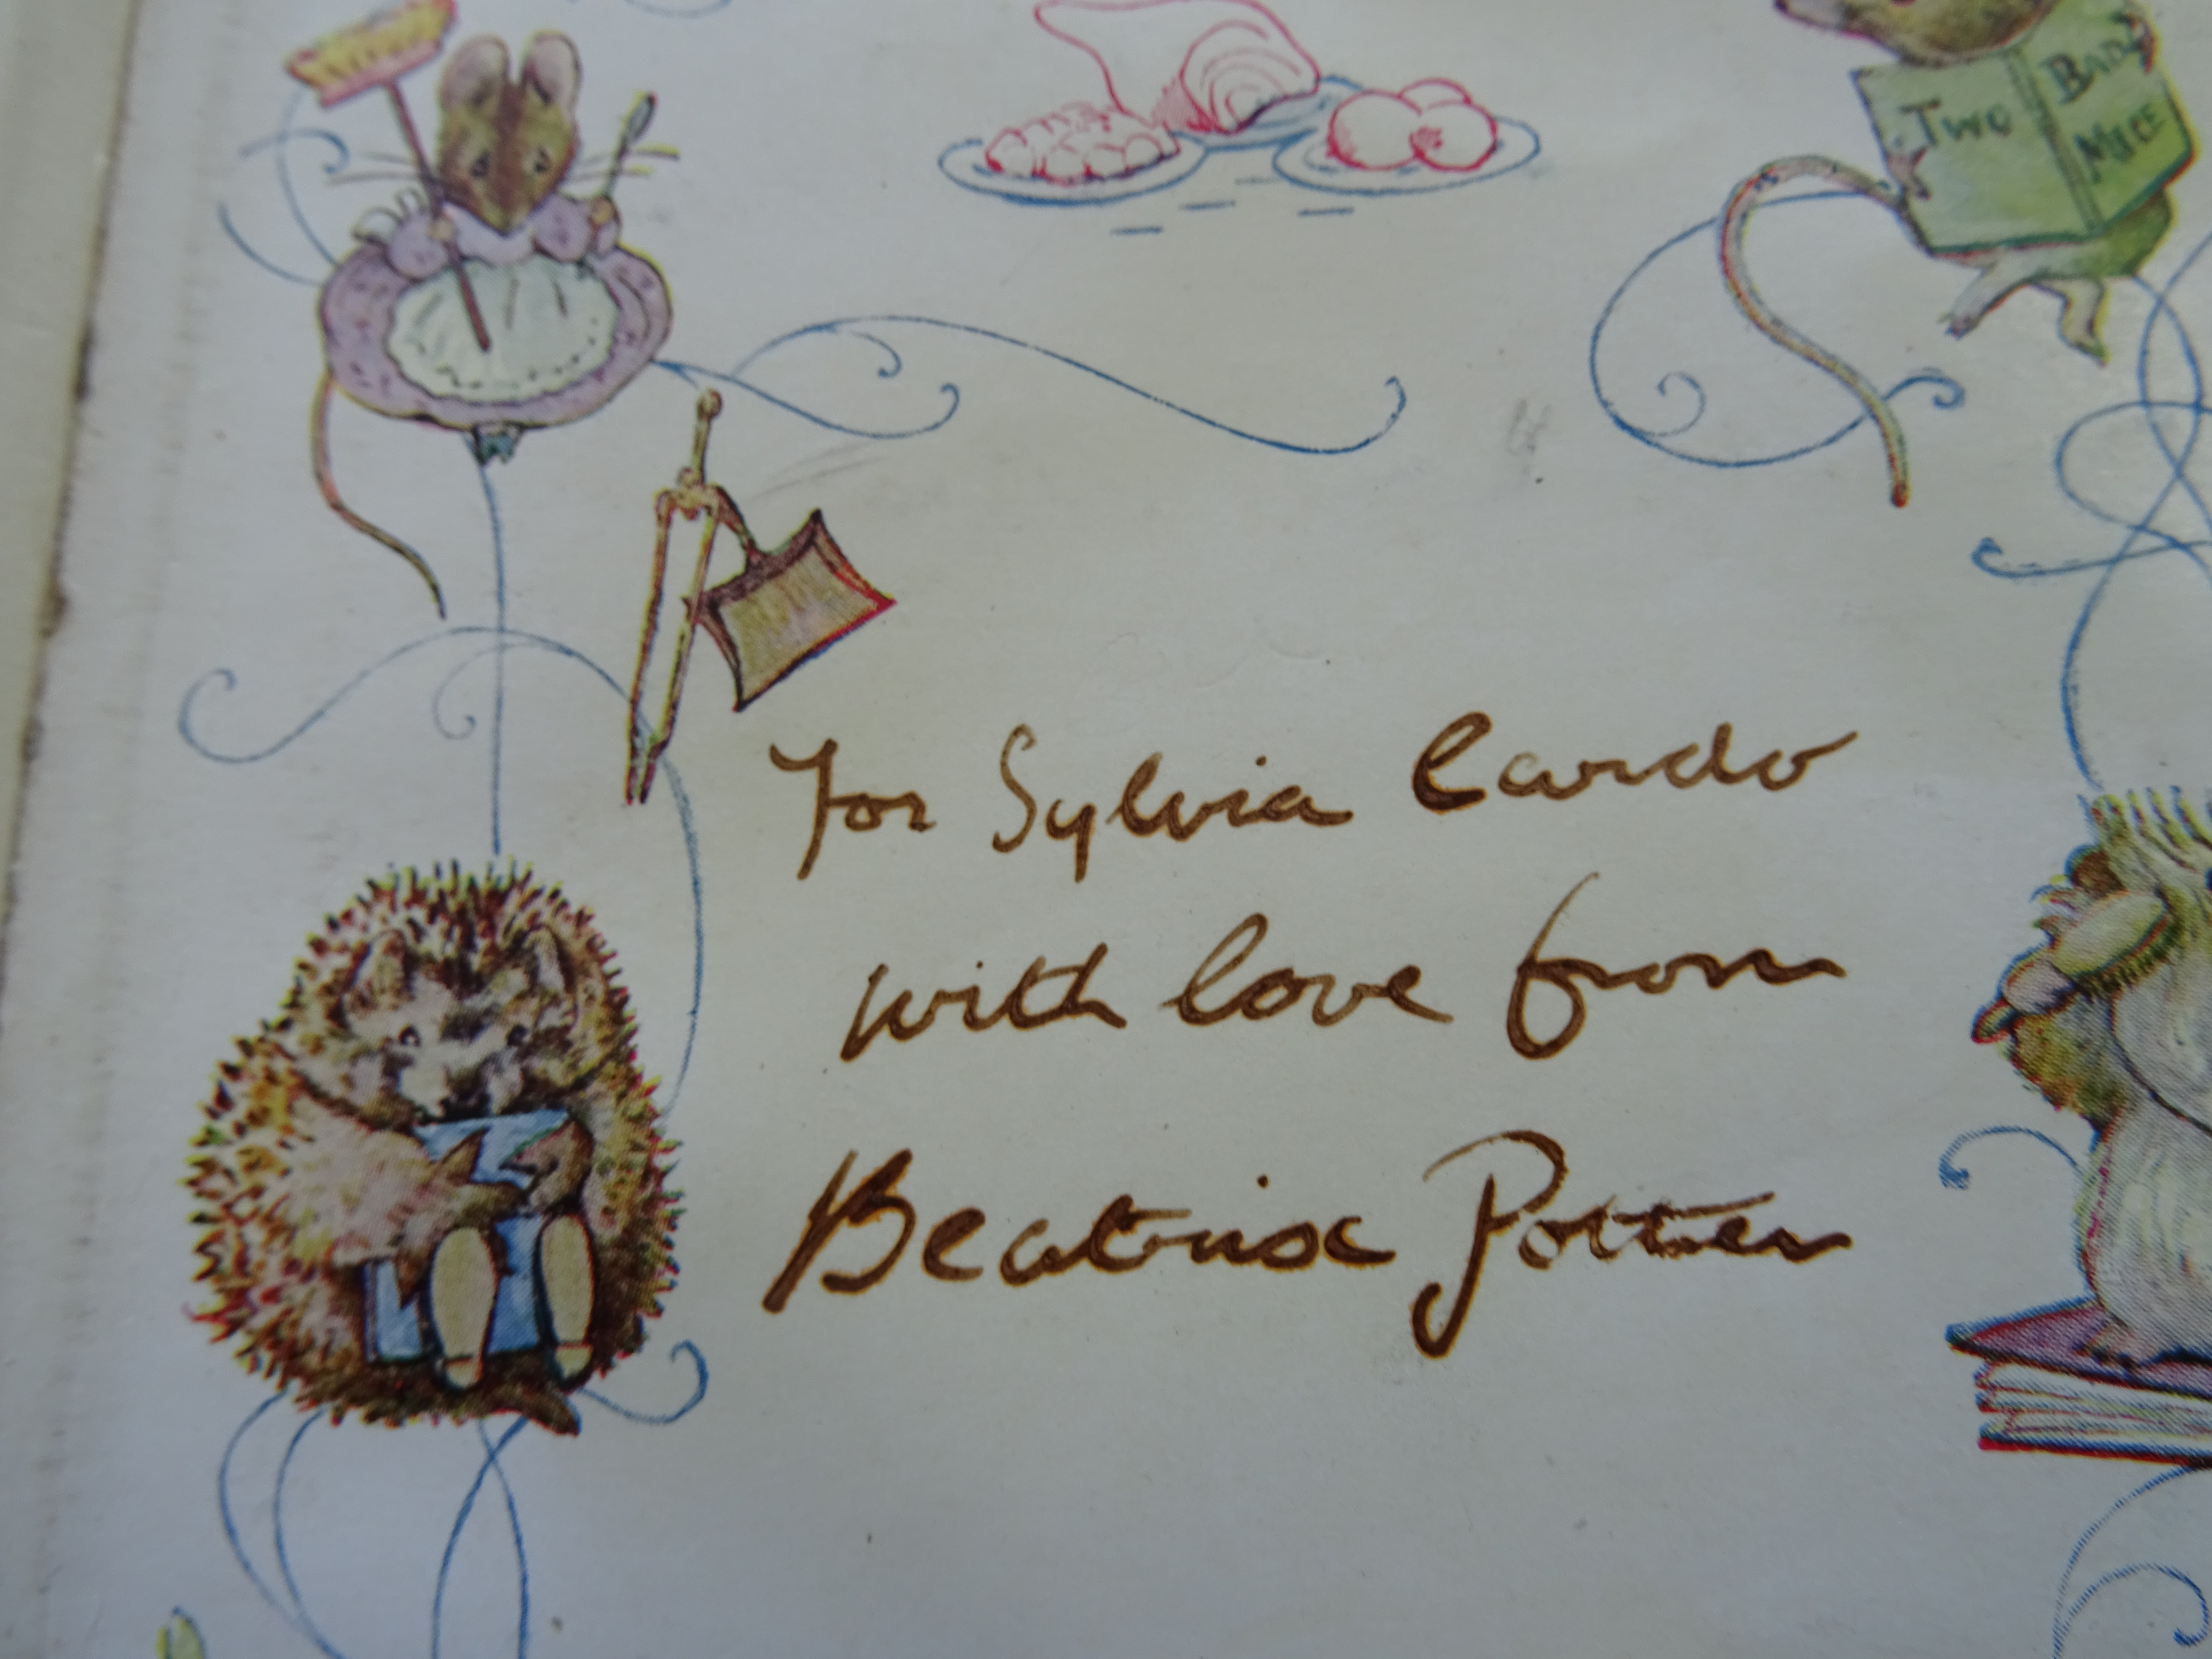 Two Bad Mice
For Sylvia Cardo
with love from
Beatrix Potter